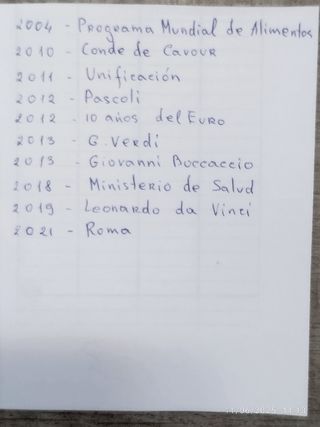 2004 - Programa Mundial de Alimentos
2010 - Conde de Cavour
2011 - Unificación
2012 - Pascoli
2012 - 10 años del Euro
2013 - G. Verdi
2013 - Giovanni Boccaccio
2018 - Ministerio de Salud
2019 - Leonardo da Vinci
2021 - Roma